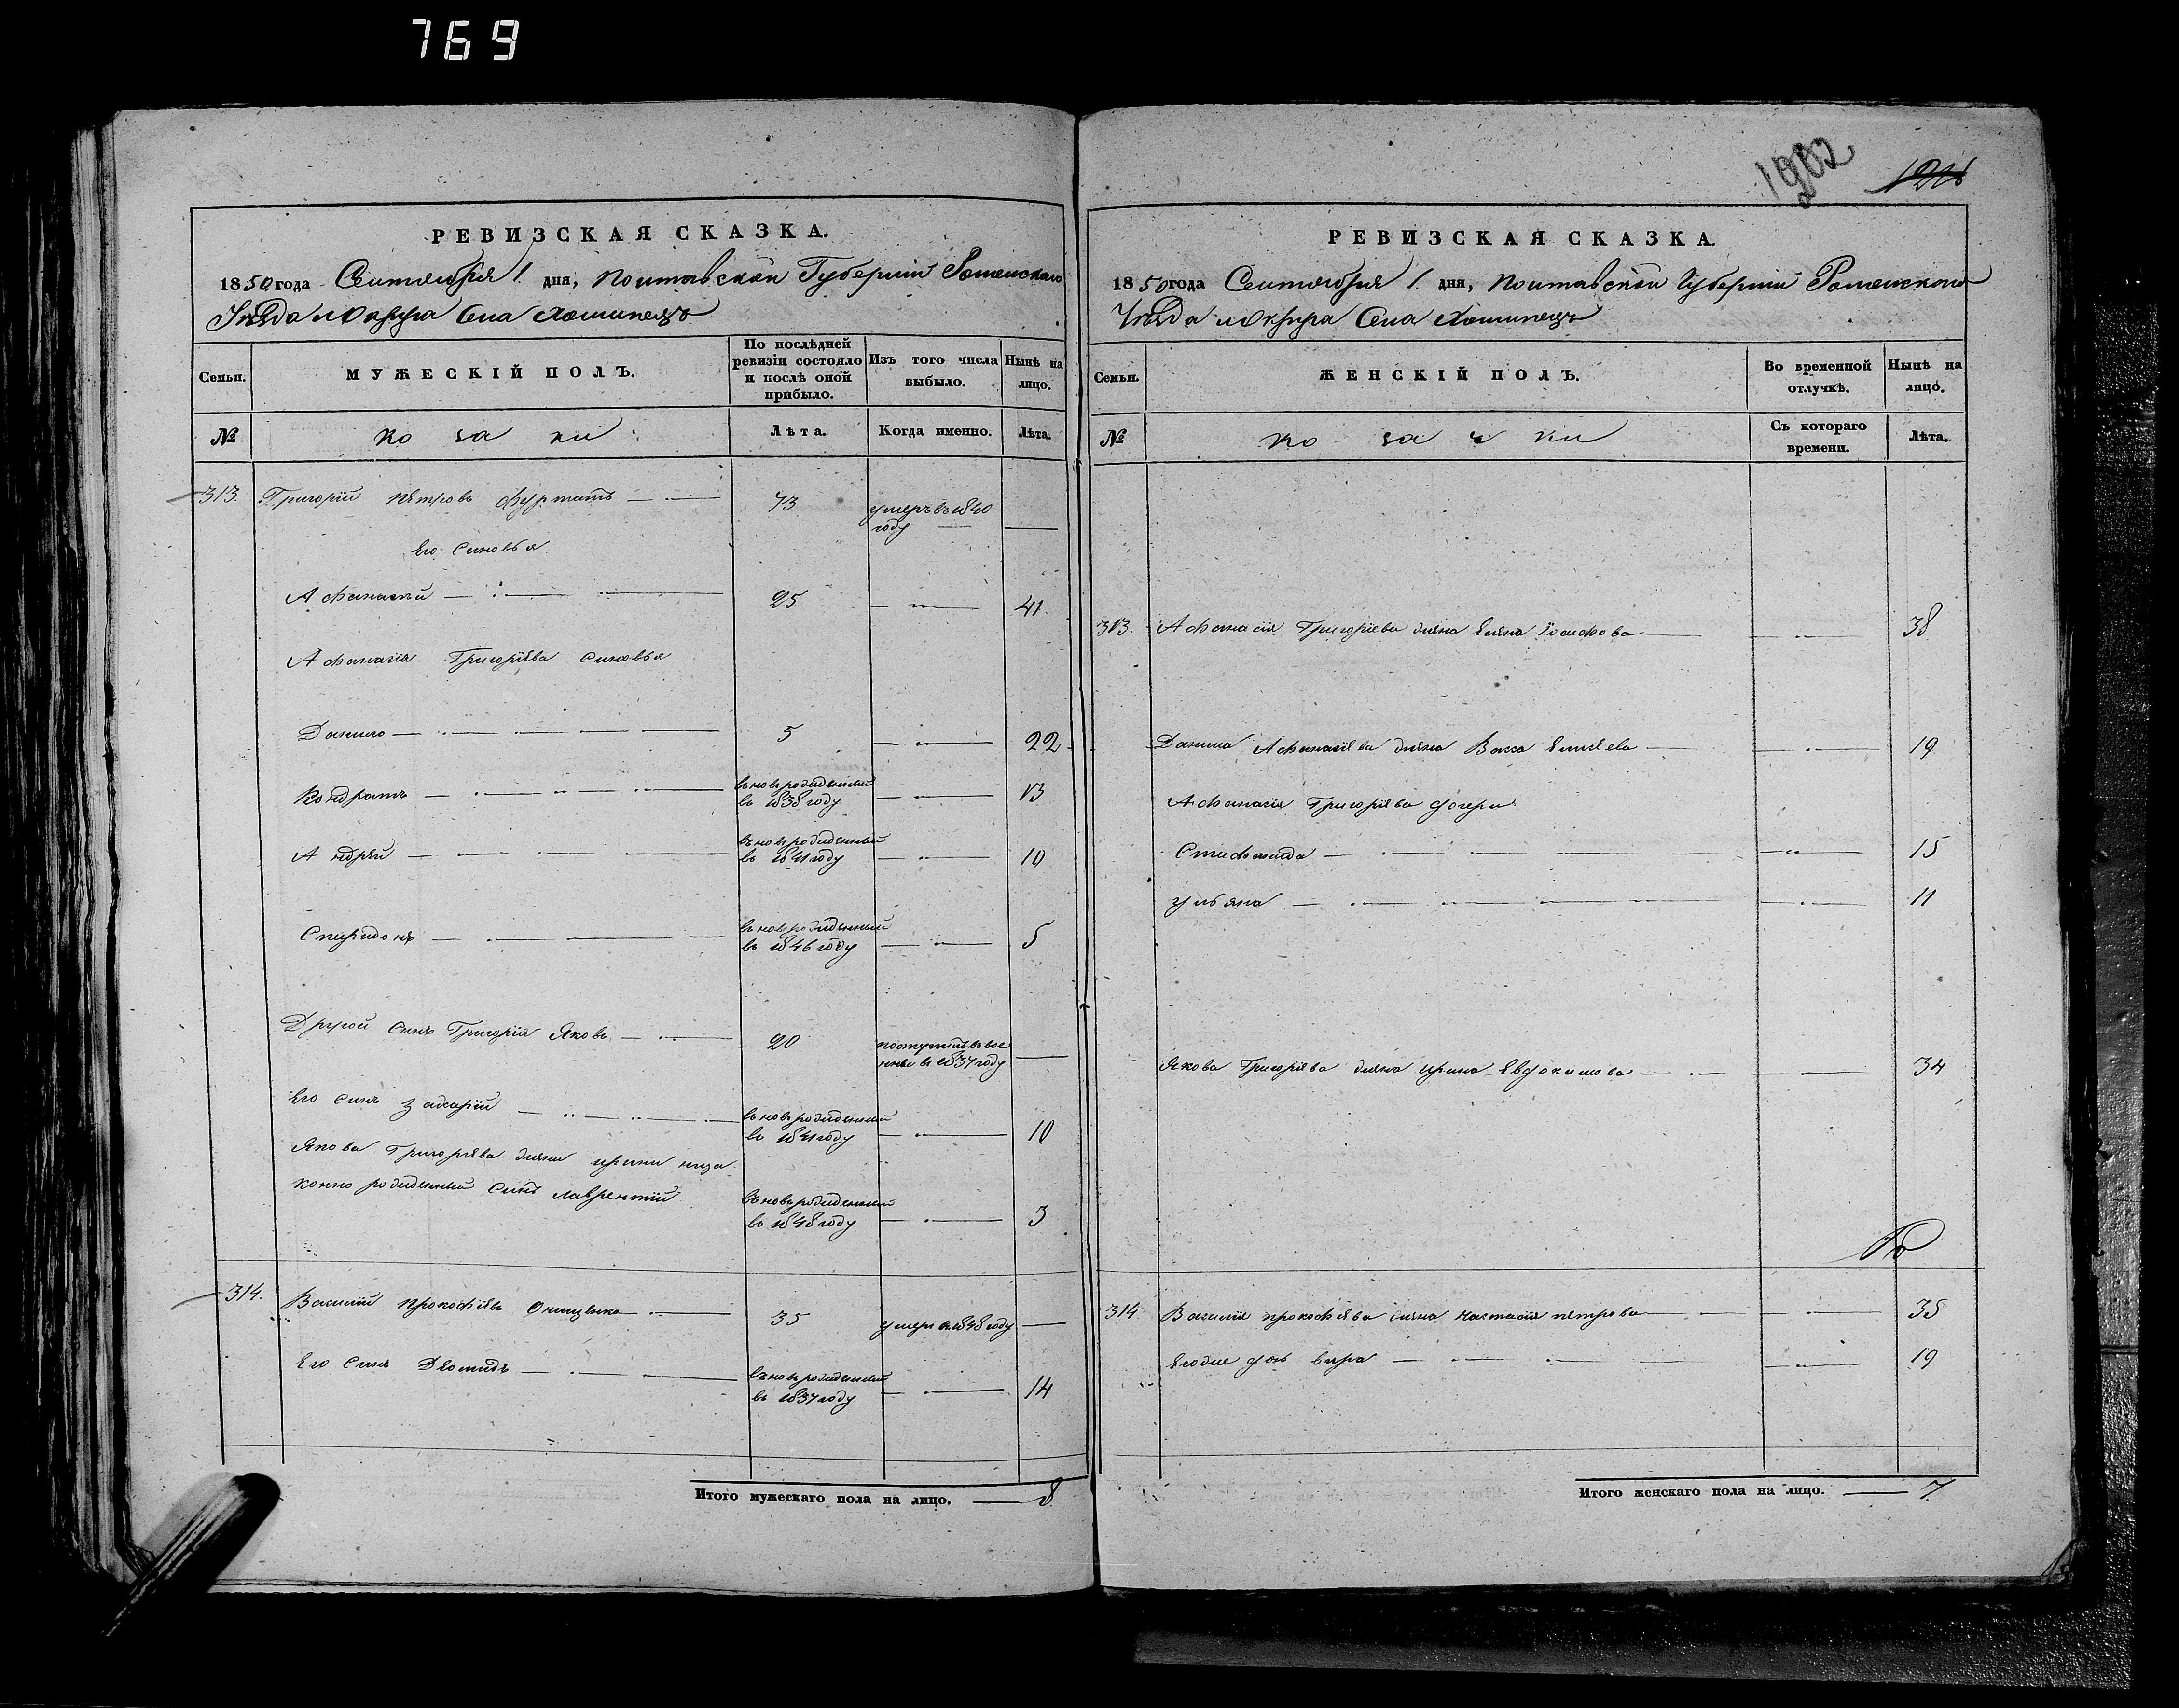 769
1902
РЕВИЗСКАЯ СКАЗКА.
1850 года Сентября 1 дня, Полтавской Губернии Роменскаго
Уезда и Округа Села Хоминецъ
Семьи.
МУЖЕСКІЙ ПОЛЪ.
По послѣдней ревизіи состояло и послѣ оной прибыло.
Изъ того числа выбыло.
Нынѣ на лицо.
№
козаки
Лѣта.
Когда именно.
Лѣта.
313. Григорій Петровъ 73 умеръ въ 1840 году
Его Синовья
Афанасий 25 41
Афанасія Григоріева Синовья
Данило 5 22
Кондратъ вновь рожденный въ 1838 году 13
Андрей вновь рожденный въ 1841 году 10
Спиридонъ вновь рожденный въ 1846 году 5
Другой Синъ Григорія Яковъ 20 въ 1837 году
Его Синъ Захарій вновь рожденный въ 1841 году 10
Якова Григоріева жени ирини неза
конно рожденный Синъ лаврентий вновь рожденный въ 1848 году 3
314. Василий Прокофіевъ Онищенко 35 умеръ въ 1848 году
Его Синъ Диомидъ вновь рожденный въ 1837 году 14
Итого мужескаго пола на лицо. 8
РЕВИЗСКАЯ СКАЗКА.
1850 года Сентября 1 дня, Полтавской Губернии Роменскаго
Уезда и Округа Села Хоминецъ
Семьи.
ЖЕНСКІЙ ПОЛЪ.
Во временной отлучкѣ.
Нынѣ на лицо.
№
козачки
Съ котораго времени.
Лѣта.
313. Афанасія Григоріева жена Иосифова 38
Данила Афанасіева жена Васса Елисѣева 19
Афанасія Григоріева дочери
Стефанида 15
ульяна 11
Якова Григоріева жена ирина Евдокимова 34
314 Василія прокофіева жена настасія петрова 35
Егоже дочь вира 19
Итого женскаго пола на лицо. 7